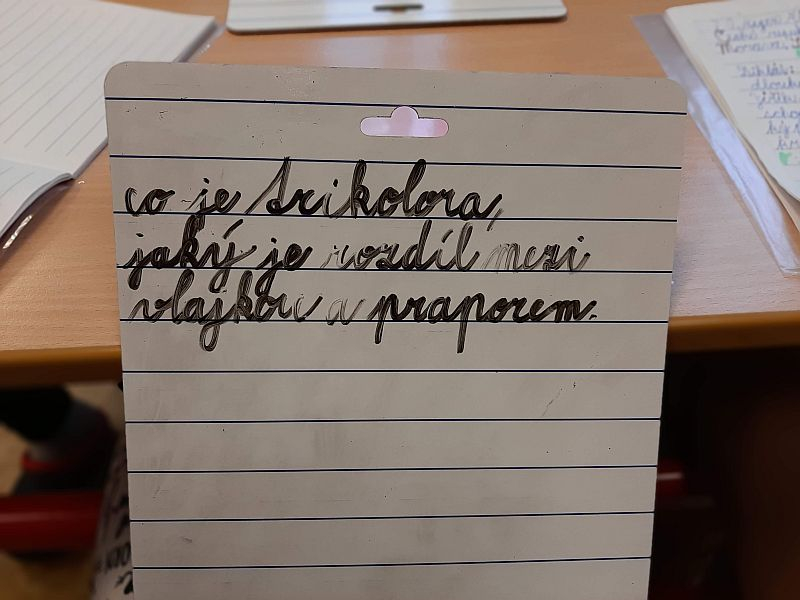 co je trikolora,
jaký je rozdíl mezi
vlajkou a praporem.